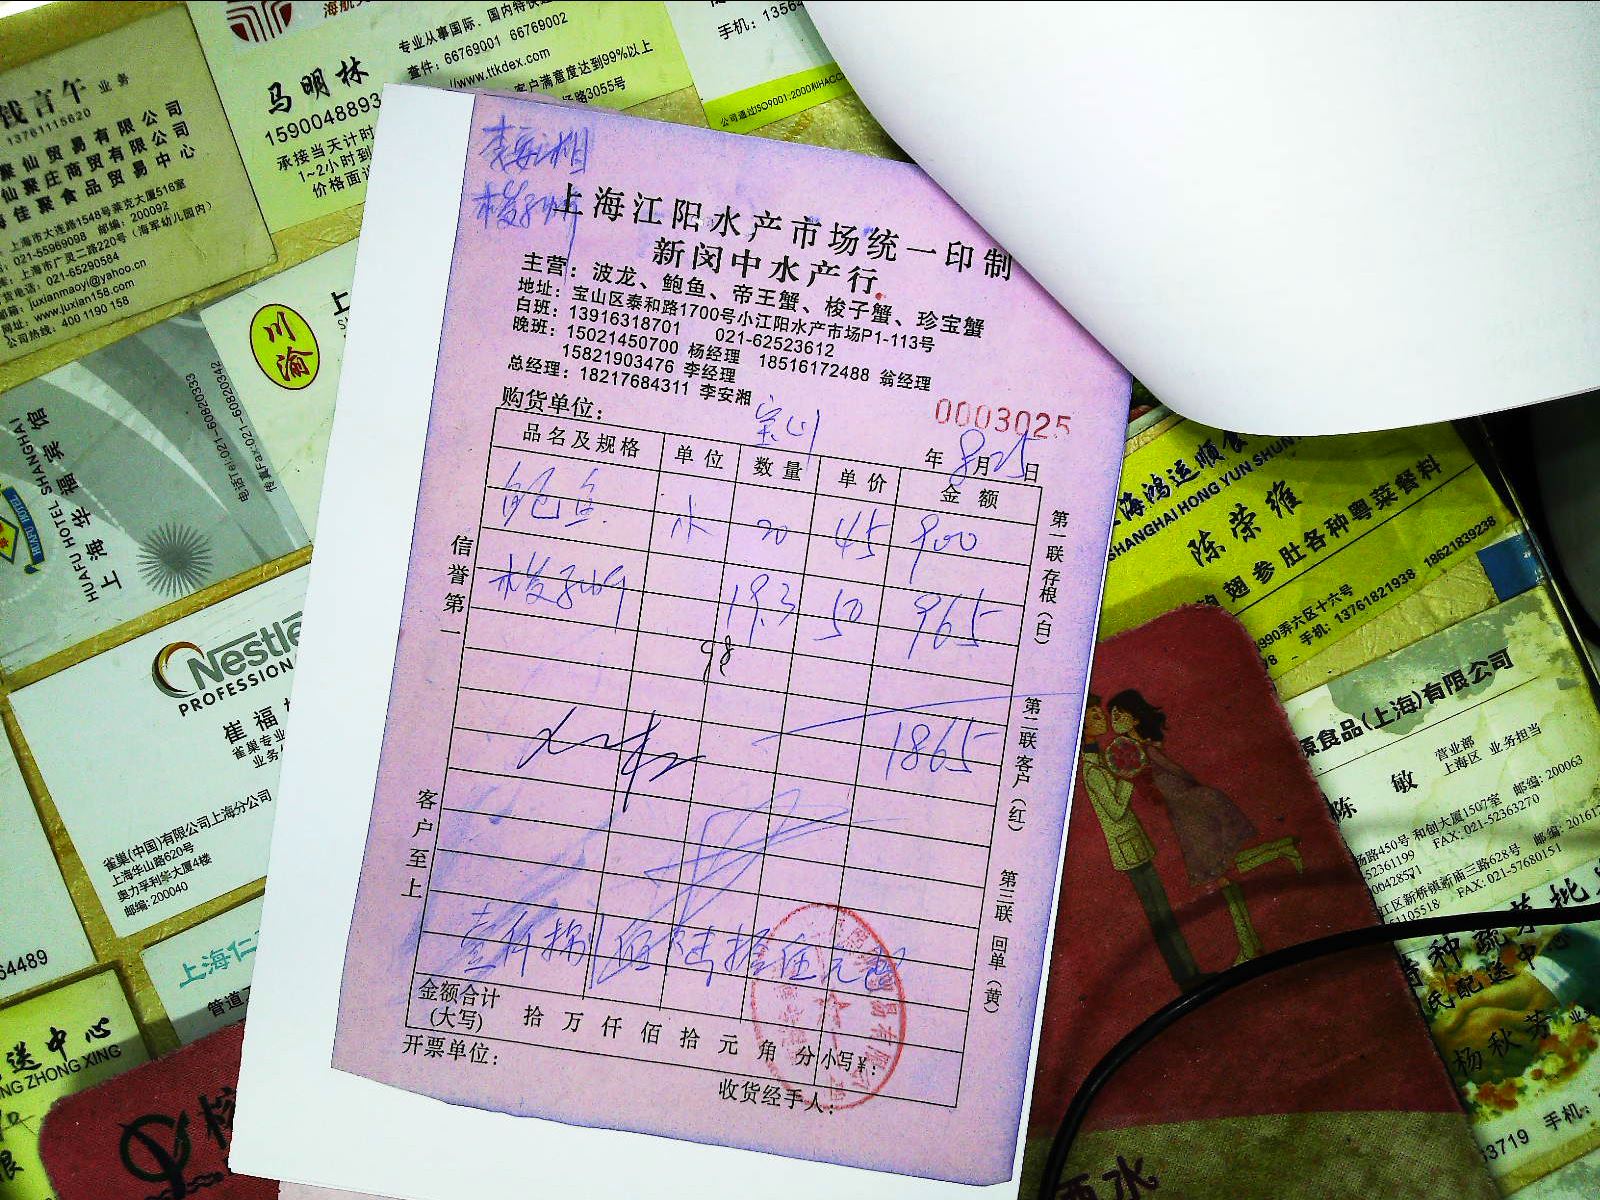 钱言午 业务
13761115620
聚仙贸易有限公司
仙聚庄商贸有限公司
佳聚食品贸易中心
上海市大连路1548号莱克大厦516室
021-55969098 邮编：200092
上海市广灵二路220号（海军幼儿园内）
货电话：021-65290584
邮箱：juxianmaoyi@yahoo.cn
网址：www.juxian158.com
公司热线：400 1190 158
马明林
1590048893
承接当天计时
1~2小时到
价格面
专业从事国际、国内特快
查件：66769001 66769002
//www.ttkdex.com
客户满意度达到99%以上
路3055号
手机：13564
公司通过ISO9001:2000和HACC
川渝
上海华福宾馆
HUAFU HOTEL SHANGHAI
电话Tel:021-60820333
传真Fax:021-60820342
Nestlé
PROFESSIONAL
崔福
雀巢专业
业务
雀巢(中国)有限公司上海分公司
上海华山路620号
奥力孚利华大厦4楼
邮编: 200040
64489
上海仁
管道
送中心
NG ZHONG XING
李安湘
梭子蟹
上海江阳水产市场统一印制
新闵中水产行
主营：波龙、鲍鱼、帝王蟹、梭子蟹、珍宝蟹
地址：宝山区泰和路1700号小江阳水产市场P1-113号
白班：13916318701 021-62523612
晚班：15021450700 杨经理 18516172488 翁经理
15821903476 李经理
总经理：18217684311 李安湘
购货单位：
0003025
年 8月25日
品名及规格 单位 数量 单价 金额
鲍鱼 20 45 900
梭子蟹 19.3 50 965
98
1865
壹仟捌佰陆拾伍元
金额合计
(大写) 拾万仟佰拾元角分 小写¥：
开票单位：
收货经手人：
信誉第一
客户至上
第一联 存根（白）
第二联 客户（红）
第三联 回单（黄）
上海鸿运顺食
SHANGHAI HONG YUN SHUN
陈荣维
翅参肚各种粤菜餐料
990弄六区十六号
手机：13761821938 18621839238
源食品(上海)有限公司
营业部
上海区 业务担当
陈敏
杨路450号 和创大厦1507室 邮编: 200063
52361199 FAX: 021-52363270
00428571
江区新桥镇新南三路628号 邮编: 20161
51105518 FAX: 021-57680151
特种蔬菜批
民配送中心
杨秋芳 业
手机：
53719
西水